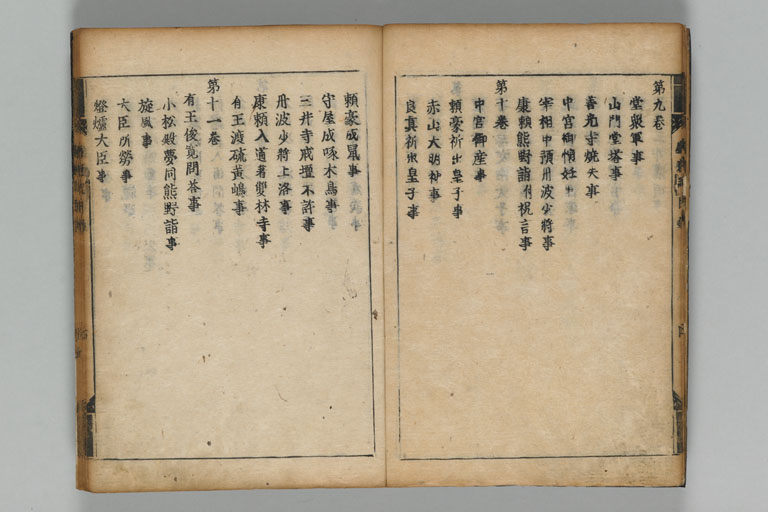 第九卷
堂衆軍事
山門堂塔事
善光寺燒失事
中宮御懷妊事
宰相申預丹波少將事
康賴熊野詣附祝言事
第十卷
中宮御産事
賴豪祈出皇子事
赤山大明神事
良真祈出皇子事
賴豪成鼠事
守屋成啄木鳥事
三井寺戒壇不許事
丹波少將上洛事
康賴入道著雙林寺事
有王渡硫黃嶋事
第十一卷
有王俊寛問答事
小松殿夢同熊野詣事
旋風事
大臣所勞事
燈爐大臣事